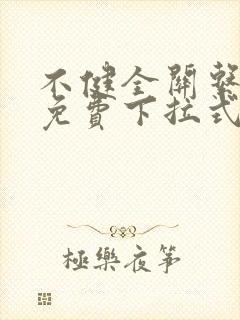 不健全關繫
免費下拉式
極樂夜箏